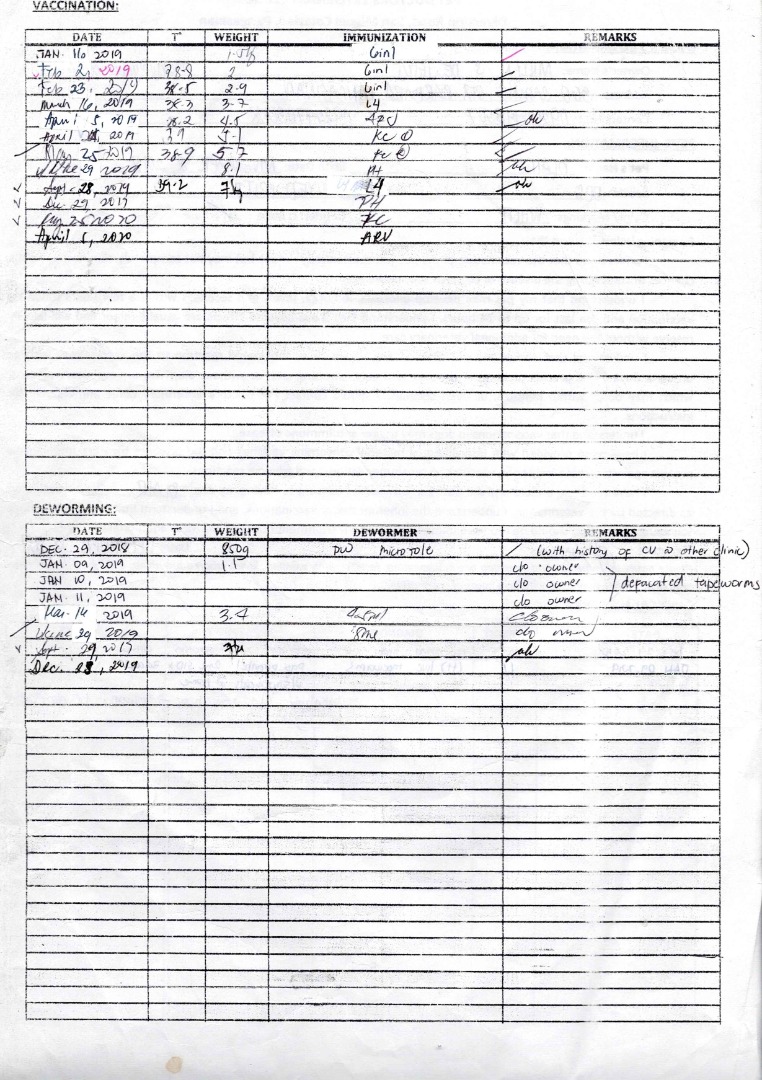 VACCINATION:
DATE T° WEIGHT IMMUNIZATION REMARKS
JAN. 2019 6in1
Feb 2, 2019 38.8 2 6in1
Feb 23, 2019 38.5 2.9 6in1
March 16, 2019 38.3 3.7 L4
April 5, 2019 38.2 4.5 ok
April 2019 39 KC ①
May 25 2019 38.9 5.7 KC ②
June 29 2019 8.1 PH ok
Sept. 28, 2019 39.2 7kg L4 ok
Dec. 29, 2019 PH
May 25 2020 KC
April 5, 2020 ARV
DEWORMING:
DATE T° WEIGHT DEWORMER REMARKS
DEC. 29, 2018 850g DW (with history of CV @ other clinic)
JAN. 09, 2019 1.1 c/o owner
JAN 10, 2019 c/o owner defacated tapeworms
JAN. 11, 2019 c/o owner
Mar. 16 2019 3.4 c/o owner
June 29, 2019 c/o owner
Sept. 29, 2019 ok
Dec. 28, 2019